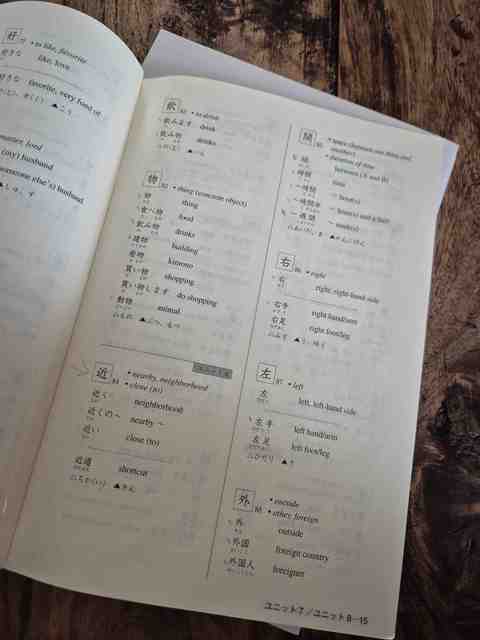 好 • to like, favorite
好きな like, love
好きな favorite, very fond of
husband, lord
(my) husband
someone else's) husband
飲 82 • to drink
飲みます drink
飲み物 drinks
物 83 • thing (concrete object)
物 thing
食べ物 food
飲み物 drinks
建物 building
着物 kimono
買い物 shopping
買い物します do shopping
動物 animal
△もの ▲ぶつ、もつ
ユニット8
近 84 • nearby, neighborhood
• close (to)
近く neighborhood
近くの〜 nearby 〜
近い close (to)
近道 shortcut
△ちか(い) ▲きん
間 85 • space (between one thing and another)
• duration of time
間 between (A and B)
時間 time
一時間 〜 hour(s)
一時間半 〜 hour(s) and a half
一週間 〜 week(s)
△あいだ、ま ▲かん、けん
右 86 • right
右 right, right-hand side
右手 right hand/arm
右足 right foot/leg
△みぎ ▲う、ゆう
左 87 • left
左 left, left-hand side
左手 left hand/arm
左足 left foot/leg
△ひだり ▲さ
外 88 • outside
• other, foreign
外 outside
外国 foreign country
外国人 foreigner
ユニット7／ユニット8—15